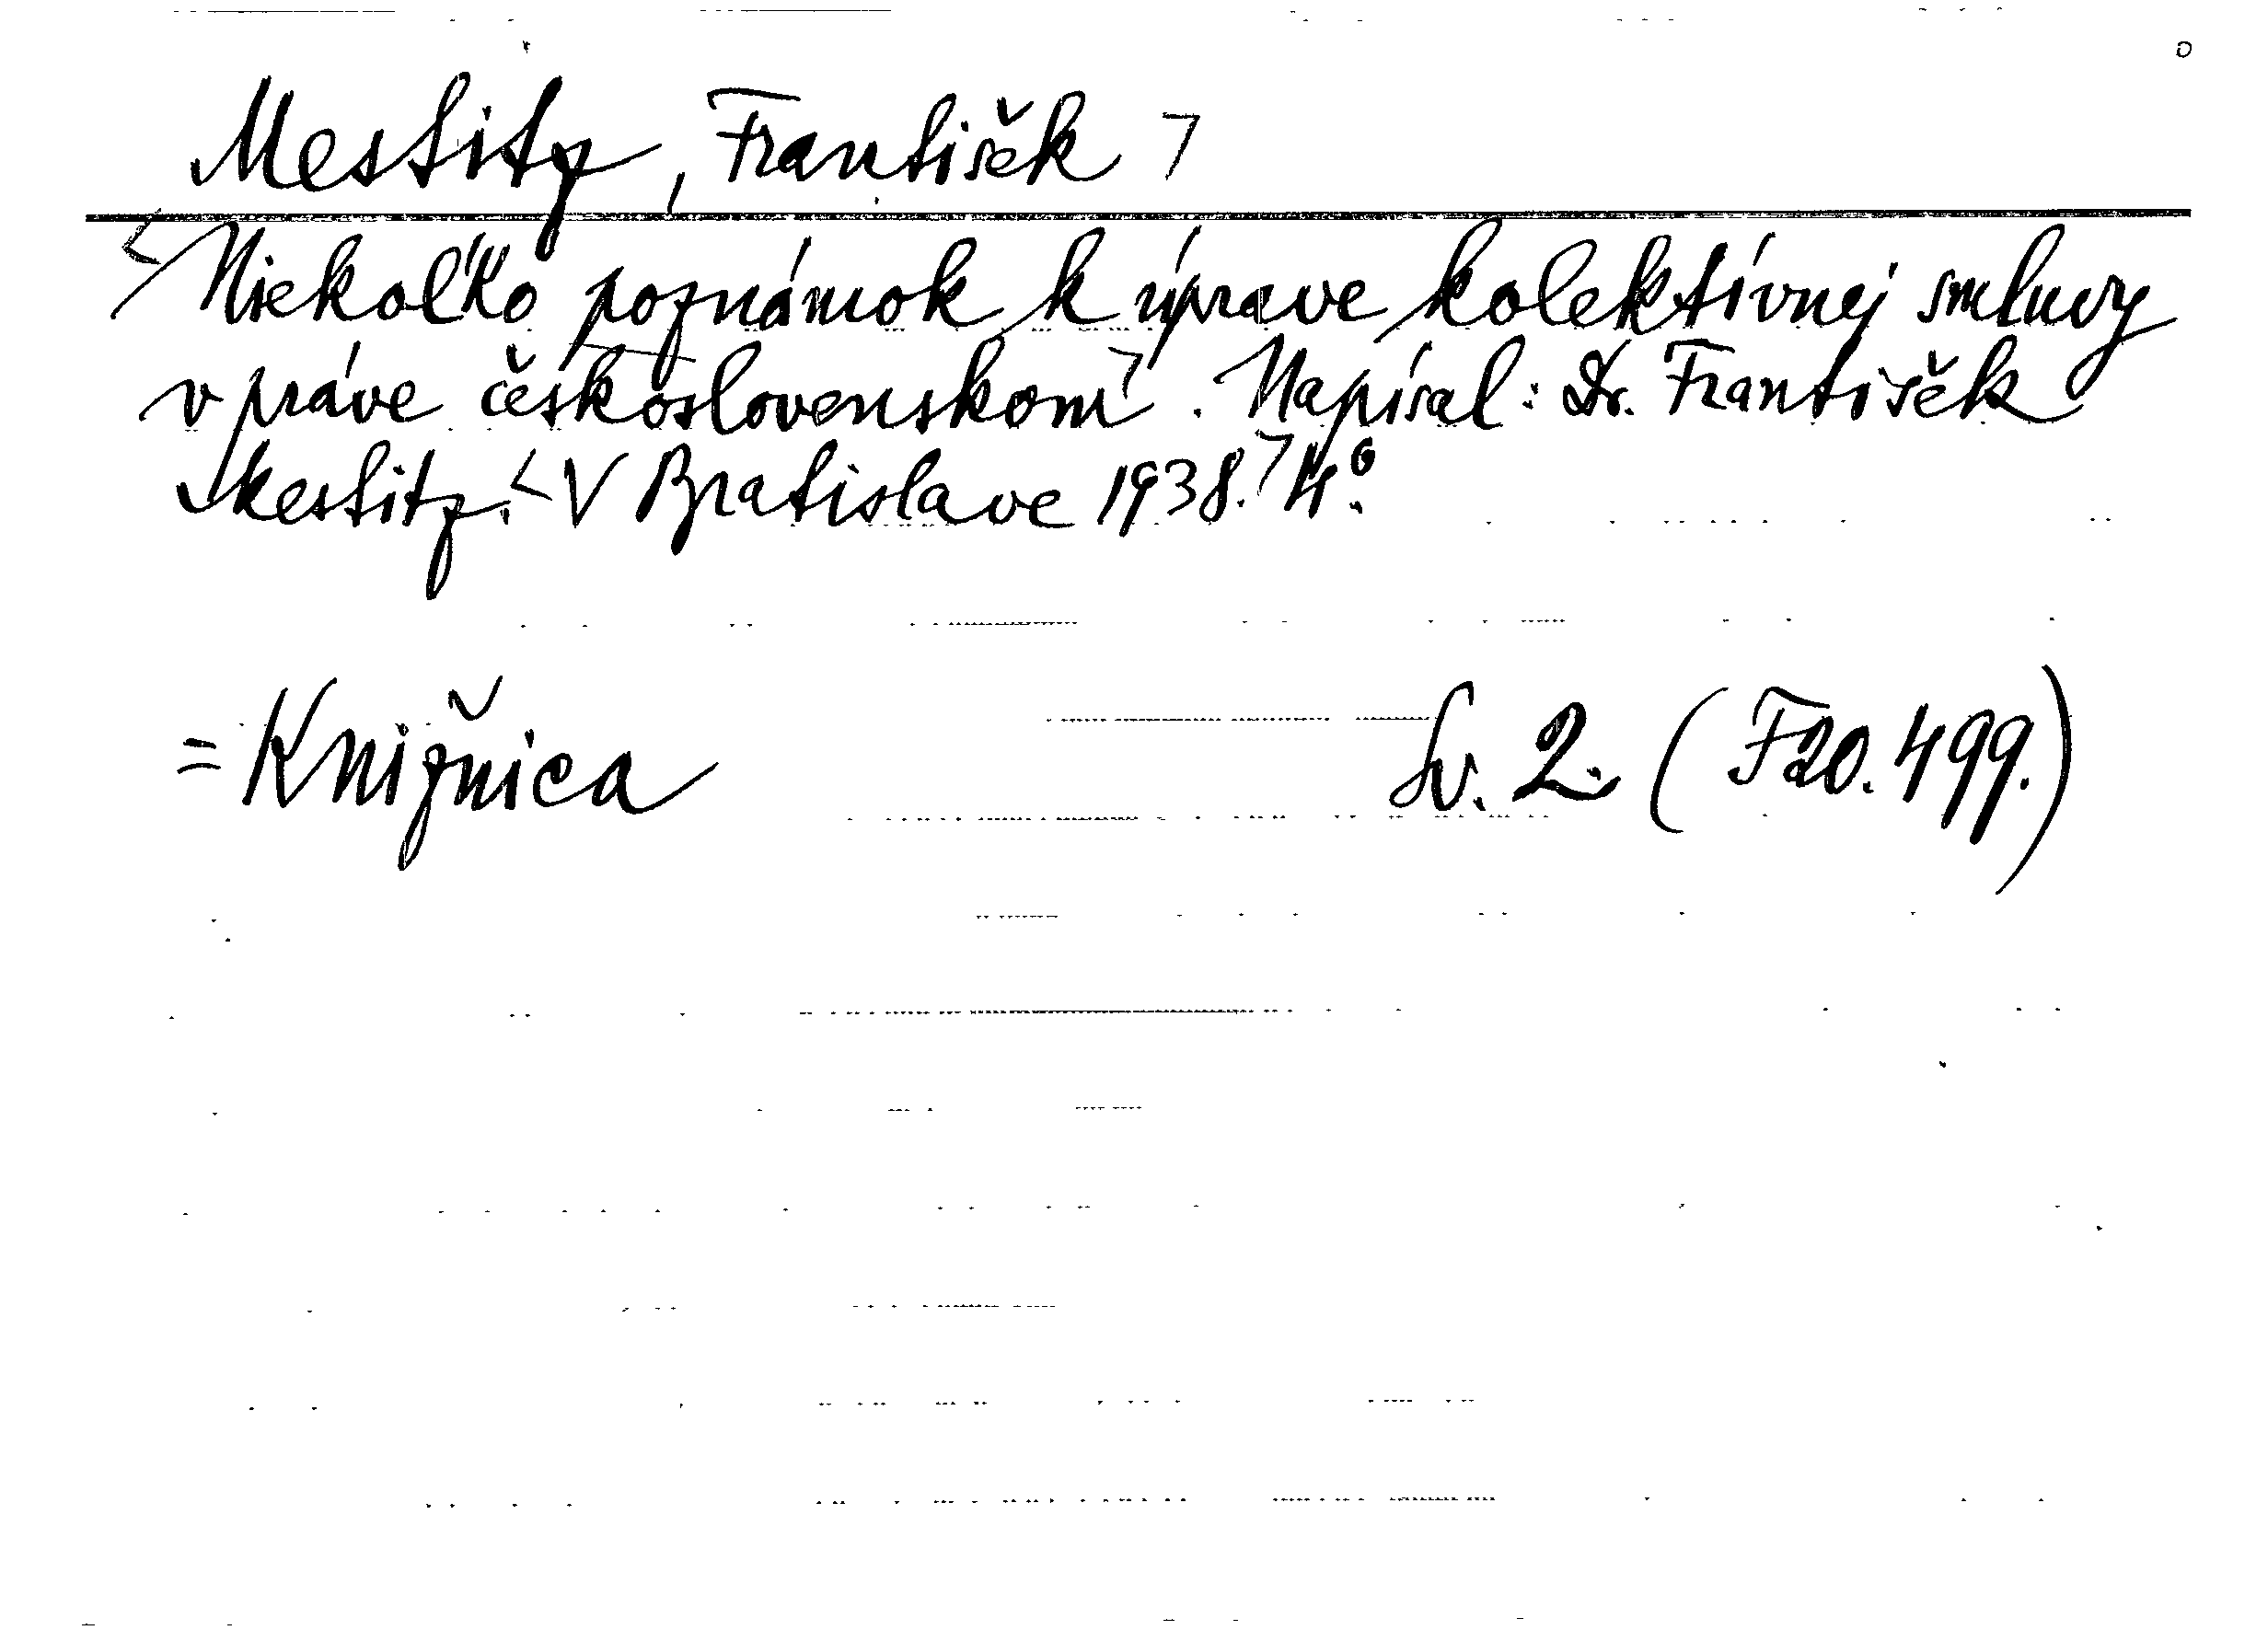 Mestitz, František ┐
<Niekoľko poznámok k úprave kolektívnej smluvy
v práve československom┐. Napísal: Dr. František
Mestitz.< V Bratislave 1938.┐ 4°.
= Knižnica Sv. 2. (F20.499.)